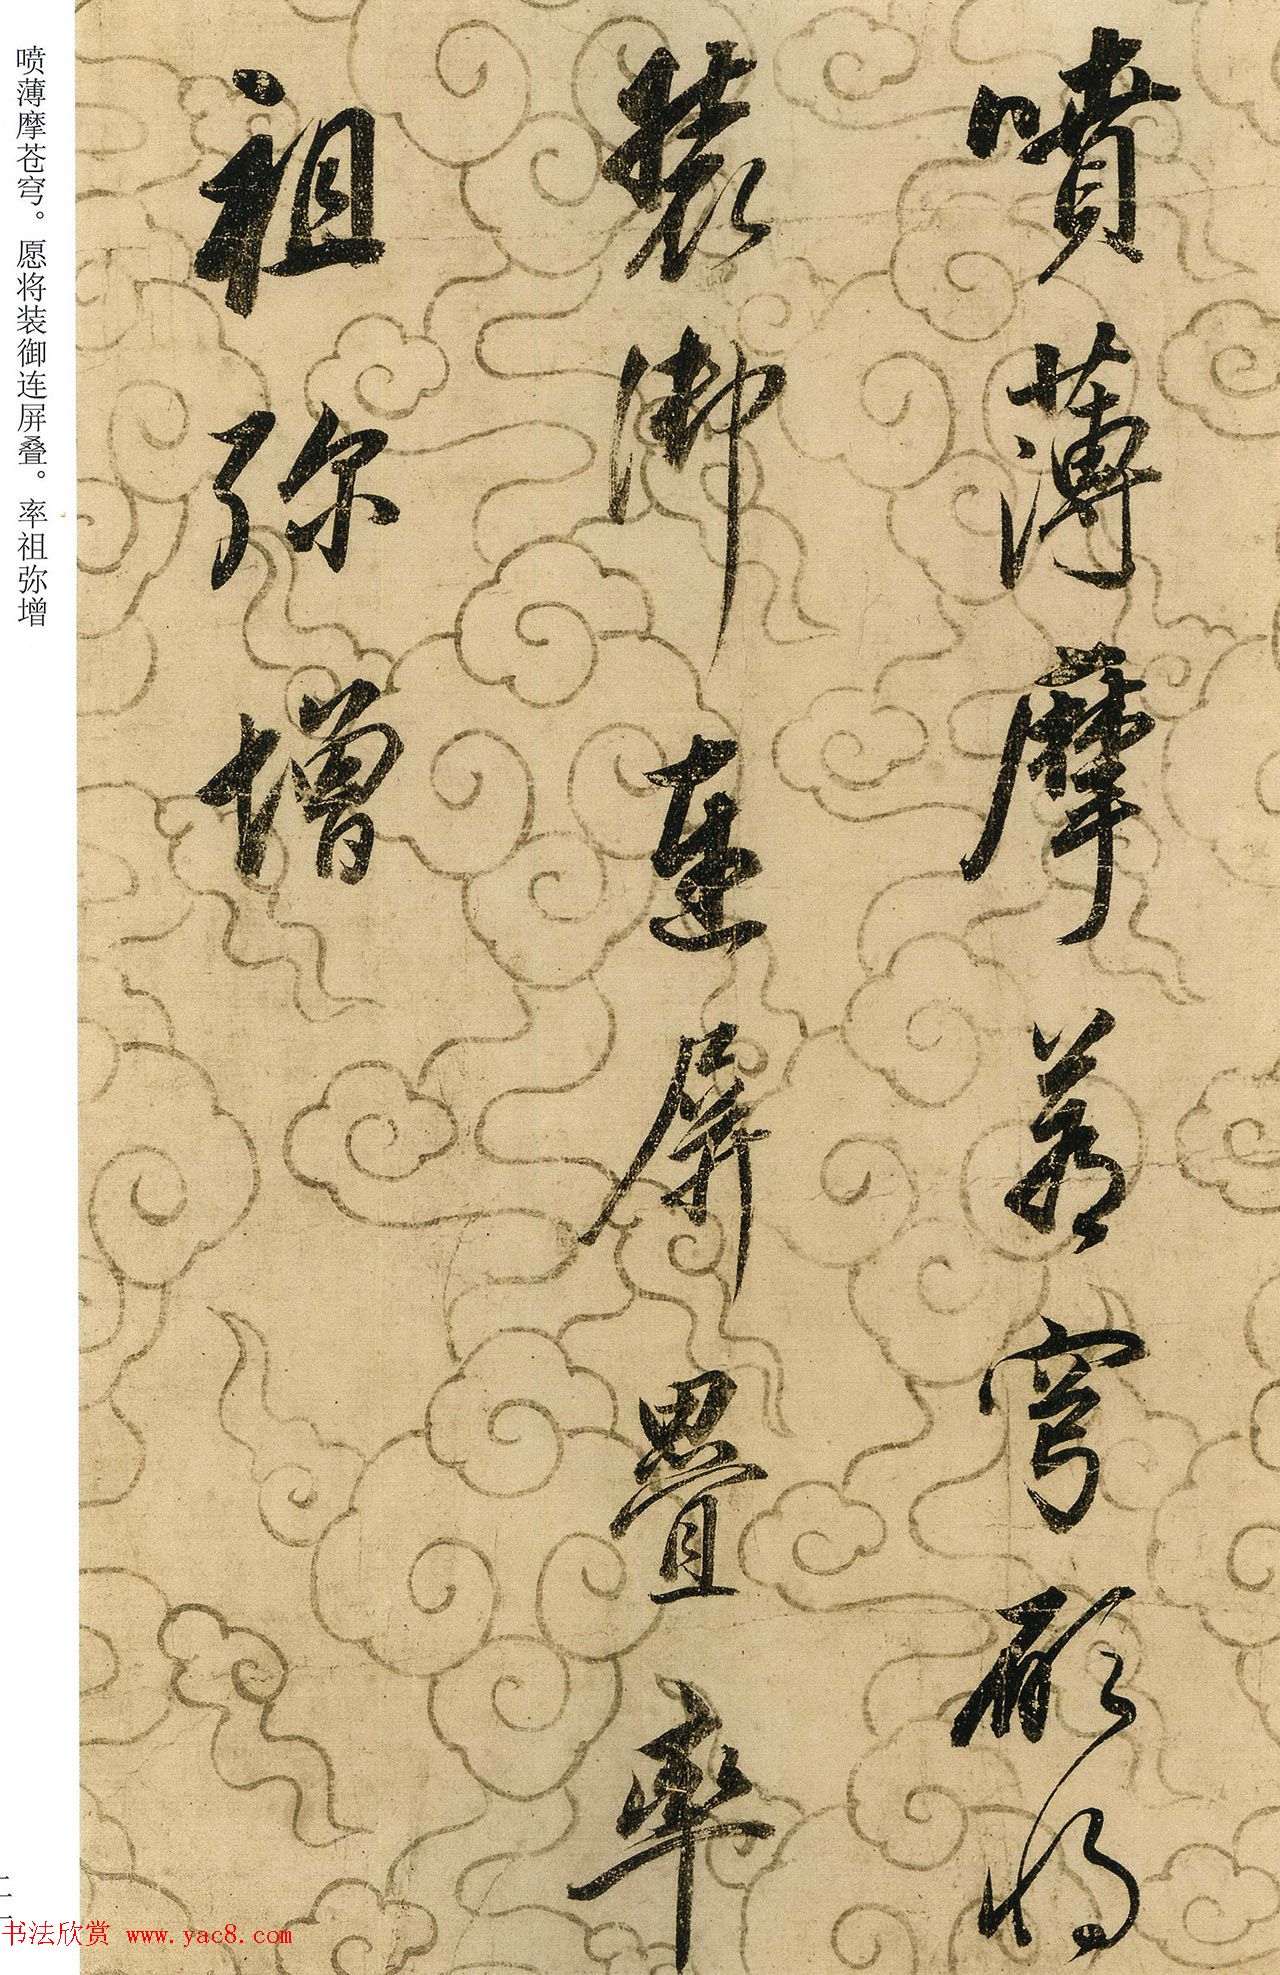 噴薄摩蒼穹願將
裝御連屏疊率
祖弥增
喷薄摩苍穹。愿将装御连屏叠。率祖弥增
书法欣赏 www.yac8.com